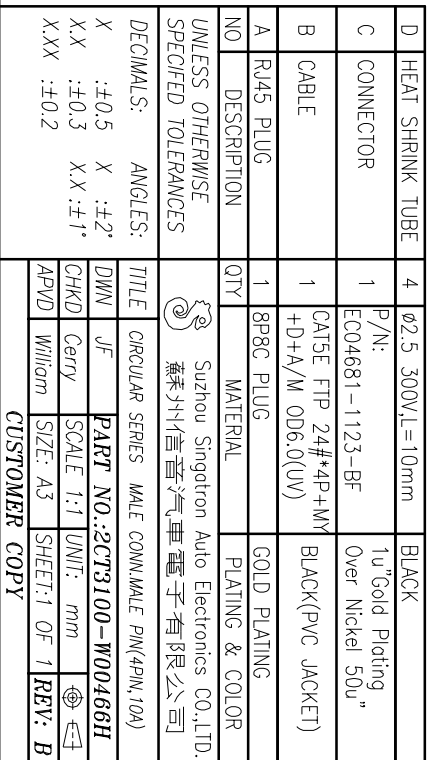 D HEAT SHRINK TUBE 4 ø2.5 300V,L=10mm BLACK
C CONNECTOR 1 P/N: EC04681-1123-BF 1u"Gold Plating Over Nickel 50u"
B CABLE 1 CAT5E FTP 24#*4P+MY +D+A/M OD6.0(UV) BLACK(PVC JACKET)
A RJ45 PLUG 1 8P8C PLUG GOLD PLATING
NO DESCRIPTION QTY MATERIAL PLATING & COLOR
UNLESS OTHERWISE
SPECIFED TOLERANCES
DECIMALS: ANGLES:
X :±0.5 X :±2°
X.X :±0.3 X.X :±1°
X.XX :±0.2
Suzhou Singatron Auto Electronics CO.,LTD.
蘇州信音汽車電子有限公司
TITLE CIRCULAR SERIES MALE CONN.MALE PIN(4PIN,10A)
DWN JF PART NO.:2CT3100-W00466H
CHKD Cerry SCALE 1:1 UNIT: mm
APVD William SIZE: A3 SHEET:1 OF 1 REV: B
CUSTOMER COPY